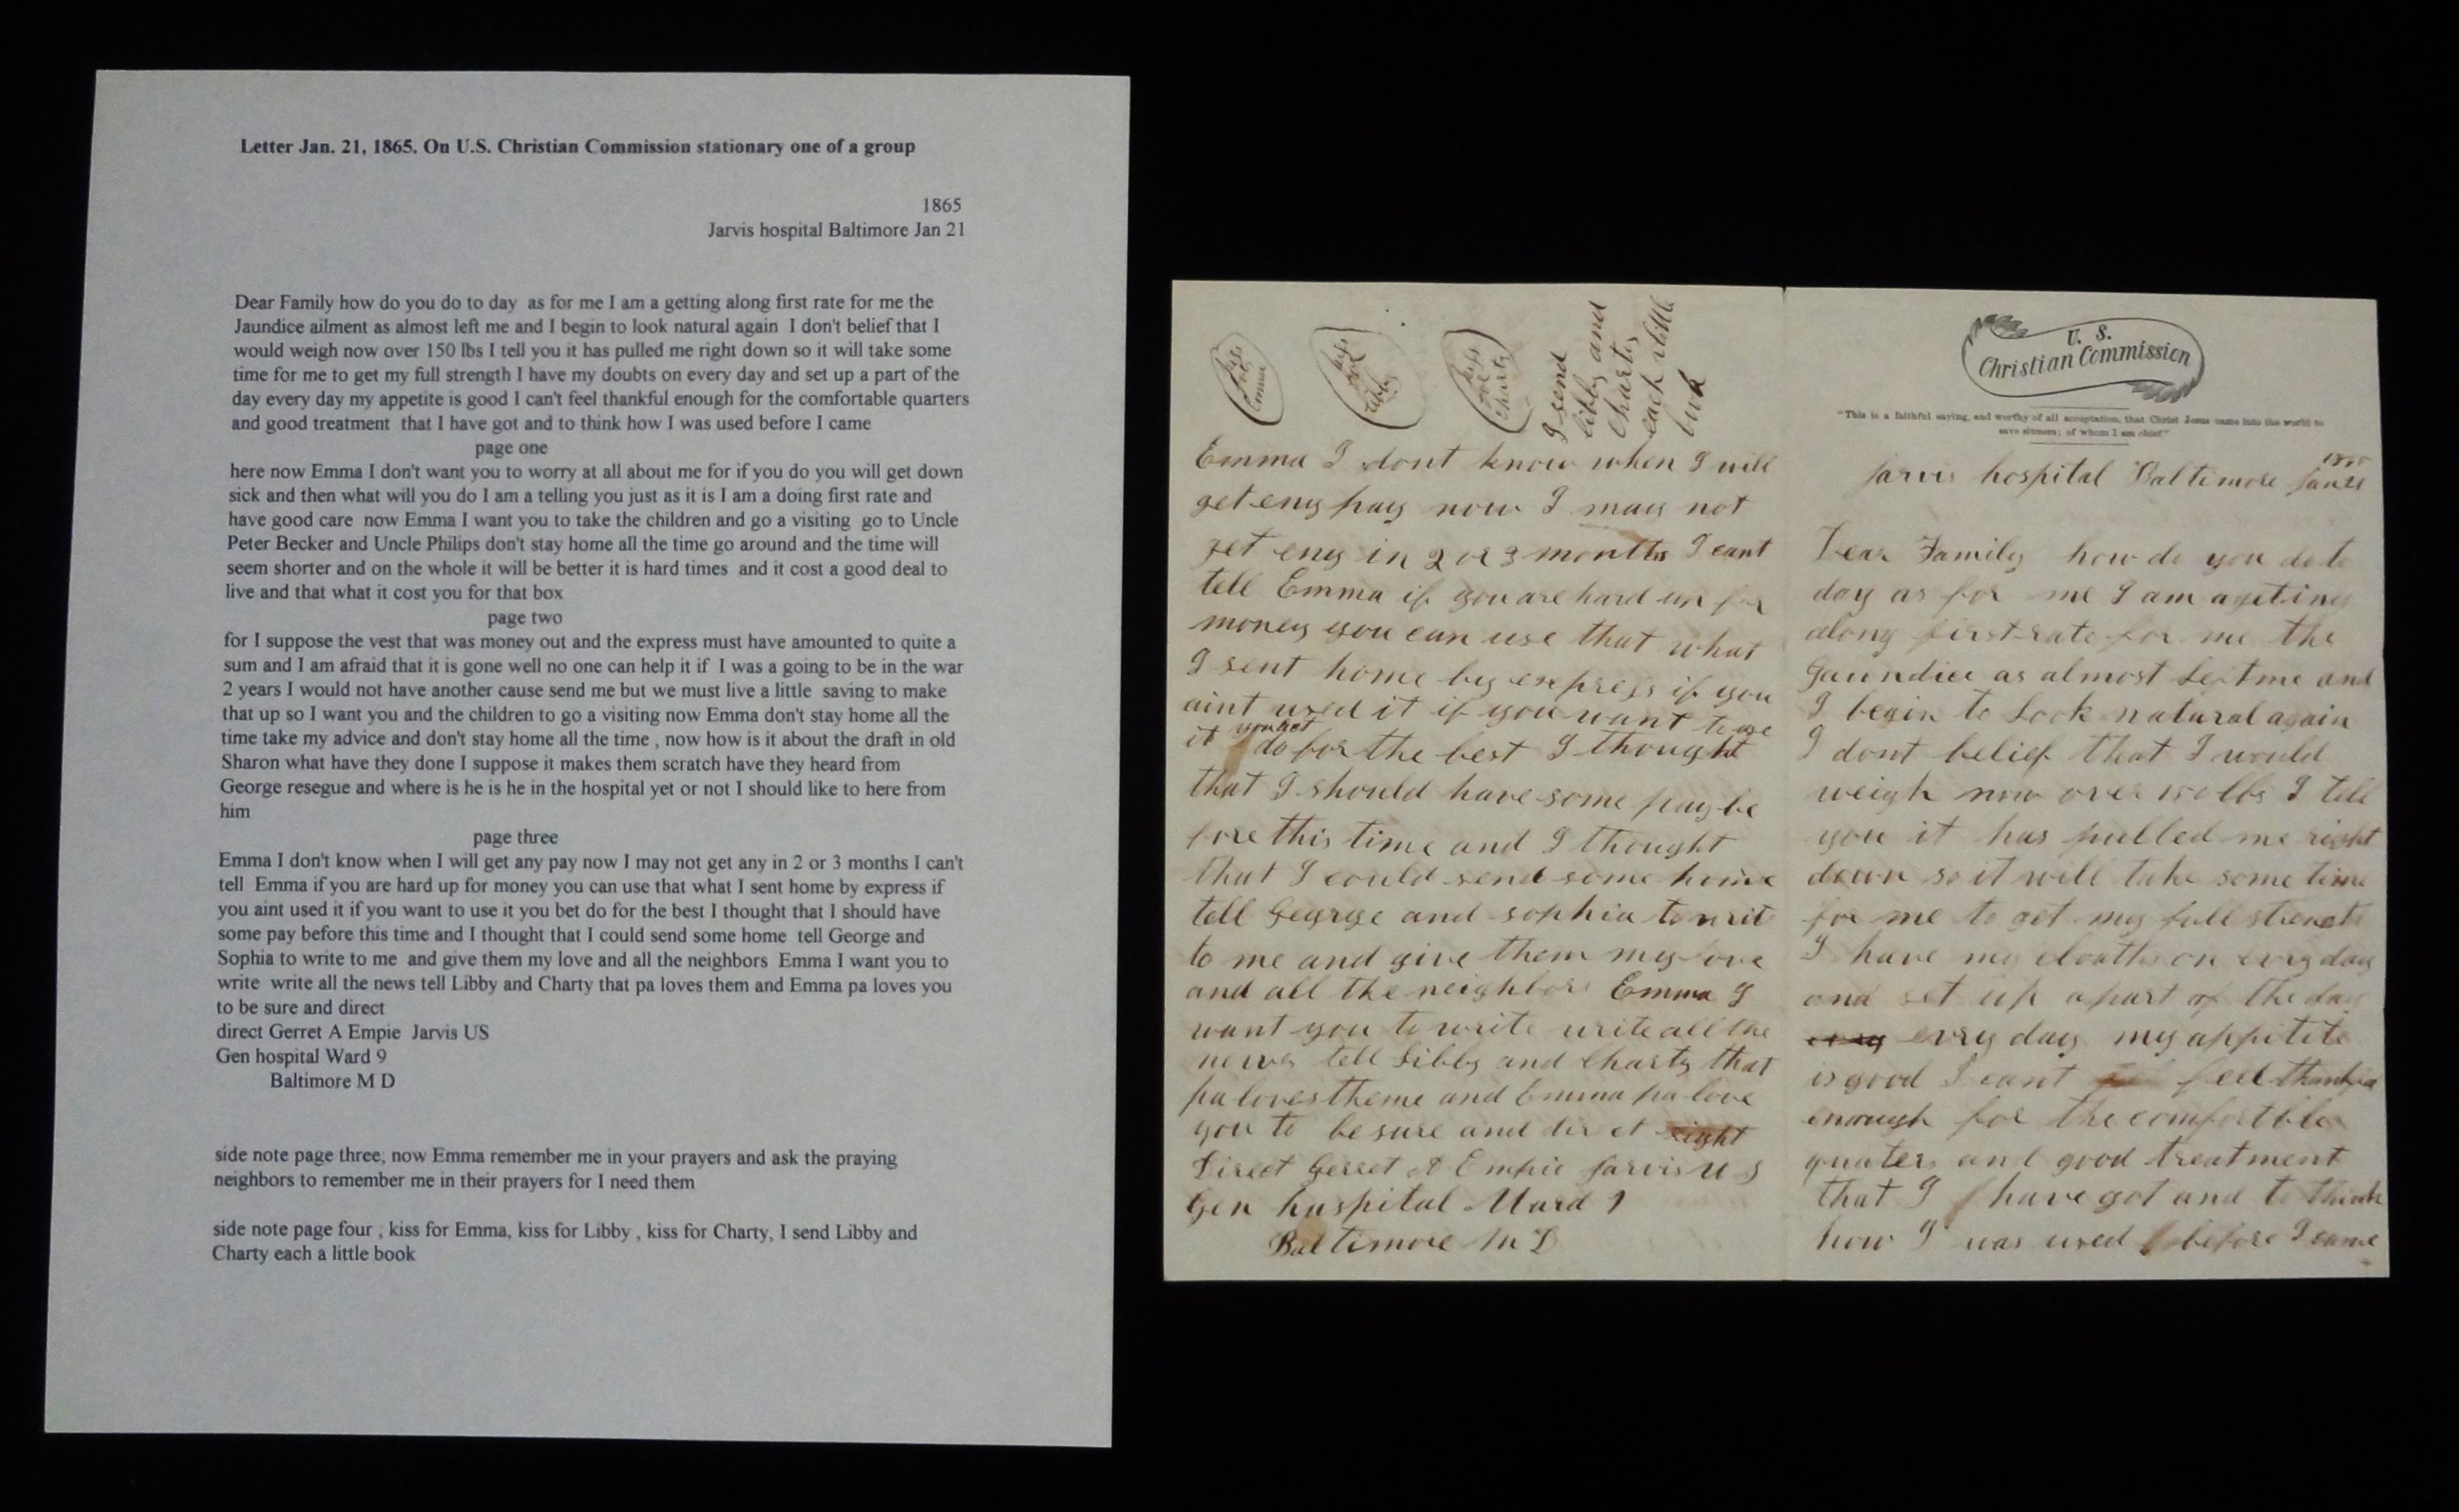 Letter Jan. 21, 1865. On U.S. Christian Commission stationary one of a group
1865
Jarvis hospital Baltimore Jan 21
Dear Family how do you do to day as for me I am a getting along first rate for me the
Jaundice ailment as almost left me and I begin to look natural again I don't belief that I
would weigh now over 150 lbs I tell you it has pulled me right down so it will take some
time for me to get my full strength I have my doubts on every day and set up a part of the
day every day my appetite is good I can't feel thankful enough for the comfortable quarters
and good treatment that I have got and to think how I was used before I came
page one
here now Emma I don't want you to worry at all about me for if you do you will get down
sick and then what will you do I am a telling you just as it is I am a doing first rate and
have good care now Emma I want you to take the children and go a visiting go to Uncle
Peter Becker and Uncle Philips don't stay home all the time go around and the time will
seem shorter and on the whole it will be better it is hard times and it cost a good deal to
live and that what it cost you for that box
page two
for I suppose the vest that was money out and the express must have amounted to quite a
sum and I am afraid that it is gone well no one can help it if I was a going to be in the war
2 years I would not have another cause send me but we must live a little saving to make
that up so I want you and the children to go a visiting now Emma don't stay home all the
time take my advice and don't stay home all the time , now how is it about the draft in old
Sharon what have they done I suppose it makes them scratch have they heard from
George resegue and where is he is he in the hospital yet or not I should like to here from
him
page three
Emma I don't know when I will get any pay now I may not get any in 2 or 3 months I can't
tell Emma if you are hard up for money you can use that what I sent home by express if
you aint used it if you want to use it you bet do for the best I thought that I should have
some pay before this time and I thought that I could send some home tell George and
Sophia to write to me and give them my love and all the neighbors Emma I want you to
write write all the news tell Libby and Charty that pa loves them and Emma pa loves you
to be sure and direct
direct Gerret A Empie Jarvis US
Gen hospital Ward 9
Baltimore M D
side note page three, now Emma remember me in your prayers and ask the praying
neighbors to remember me in their prayers for I need them
side note page four , kiss for Emma, kiss for Libby , kiss for Charty, I send Libby and
Charty each a little book
kiss for Emma
kiss for Libby
kiss for Charty
I send
Libby and
Charty
each a little
book
Emma I dont know when I will
get eny pay now I may not
get eny in 2 or 3 months I cant
tell Emma if you are hard up for
money you can use that what
I sent home by express if you
aint used it if you want to use
it you bet do for the best I thought
that I should have some pay be
fore this time and I thought
that I could send some home
tell George and sophia to writ
to me and give them my love
and all the neighbors Emma I
want you to write write all the
news tell Libby and Charty that
pa loves theme and Emma pa love
you to be sure and diret right
Direct Gerret A Empie Jarvis U S
Gen huspital Ward 9
Baltimore M D
U. S.
Christian Commission
"This is a faithful saying, and worthy of all acceptation, that Christ Jesus came into the world to
save sinners; of whom I am chief."
1865
Jarvis hospital Baltimore Jan 21
Dear Family how do you do to
day as for me I am a geting
along first rate for me the
Gaundice as almost Left me and
I begin to Look natural again
I dont belief that I would
weigh now over 150 lbs I tell
you it has pulled me right
down so it will take some time
for me to get my full strength
I have my cloaths on evry day
and set up a part of the day
evry day my appitite
is good I cant feel thankful
enough for the comfortble
quaters and good treatment
that I have got and to think
how I was used before I came